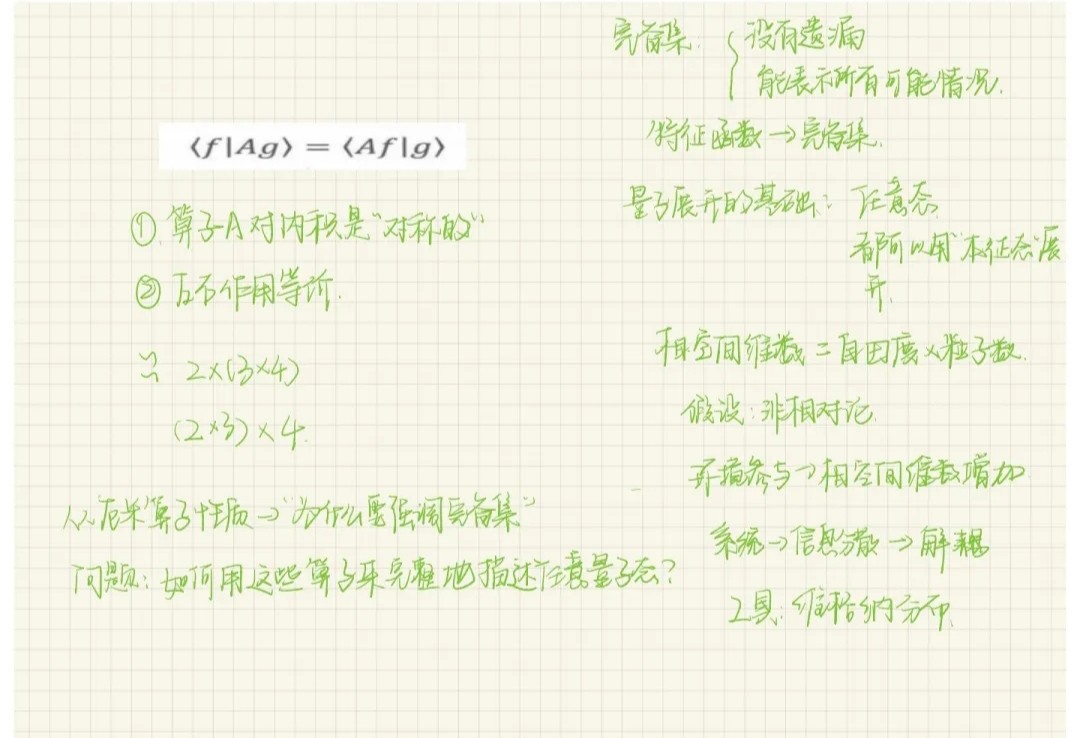 ⟨f|Ag⟩ = ⟨Af|g⟩
①. 算子A对内积是"对称的"
② 左右作用等价.
2×(3×4)
(2×3)×4.
从厄米算子性质→"为什么要强调完备集"
问题: 如何用这些算子来完整地描述任意量子态?
完备集. { 没有遗漏
能表示所有可能情况.
特征函数→完备集.
量子展开的基础: 任意态
都可以用"本征态"展
开.
相空间维数 = 自由度×粒子数.
假设: 非相对论.
环境参与→相空间维数增加
系统→信息分散→解耦
工具: 维格纳分布.